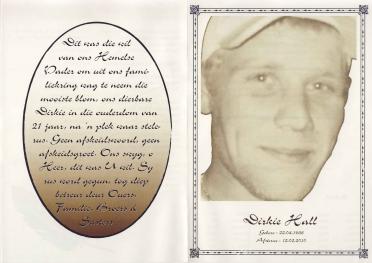 Dit was die wil
van ons Hemelse
Vader om uit ons fami-
liekring weg te neem die
mooiste blom, ons dierbare
Dirkie in die ouderdom van
21 jaar, na 'n plek waar stele-
rus. Geen afskeidswoord, geen
afskeidsgroet. Ons swyg, o
Heer, dit was U wil. Sy
rus word gegun, tog diep
betreur deur Ouers,
Familie, Broers &
Susters
Dirkie Hall
Gebore - 22.04.1988
Afsterwe - 12.02.2010